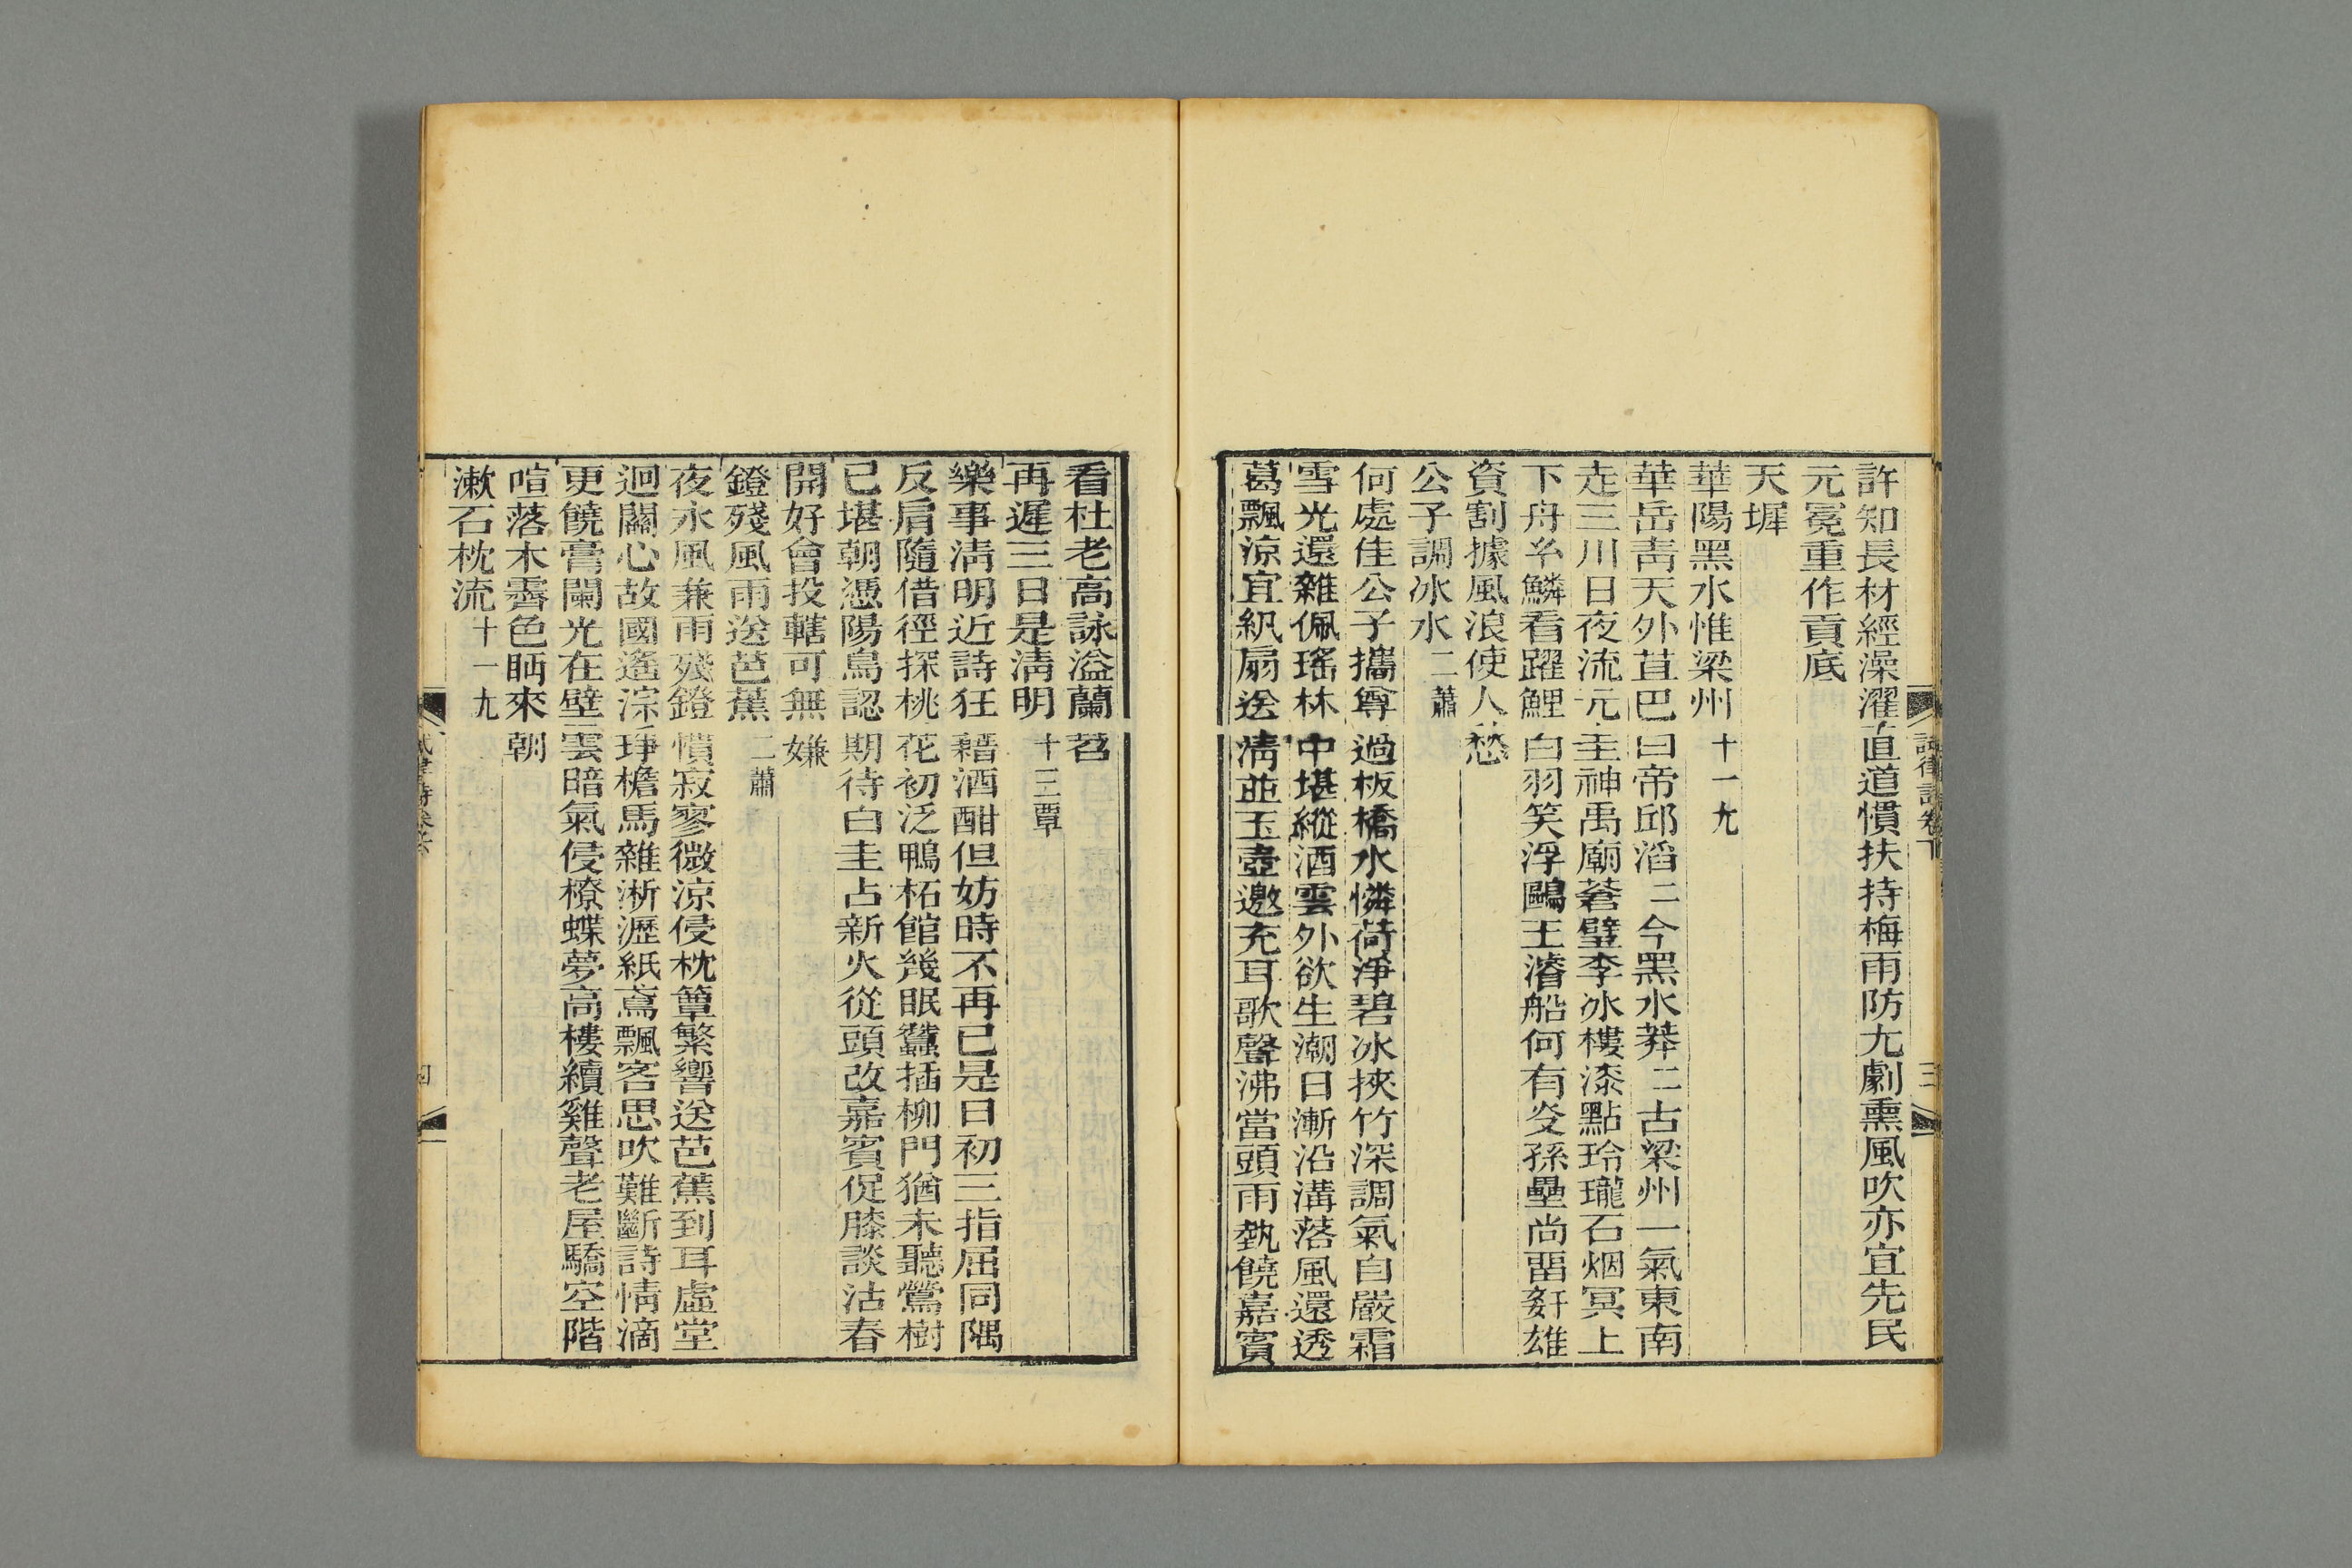 許知長材經澡濯直道慣扶持梅雨防尢劇熏風吹亦宜先民
元冕重作貢底
天墀
華陽黑水惟梁州十一尤
華岳青天外苴巴曰帝邱滔二今黑水莽二古梁州一氣東南
走三川日夜流元圭神禹廟蒼璧李冰樓漆點玲瓏石烟冥上
下舟糸鱗看躍鯉白羽笑浮鷗王濬船何有孫壘尚畱姧雄
資割據風浪使人愁
公子調冰水二蕭
何處佳公子攜尊過板橋水憐荷淨碧冰挾竹深調氣自嚴霜
雪光還雜佩瑤林中堪縱酒雲外欲生潮日漸沿溝落風還透
葛飄涼宜紈扇送淸並玉壺邀充耳歌聲沸當頭雨埶饒嘉賓
看杜老高詠溢蘭苕
再遲三日是淸明十三覃
樂事淸明近詩狂藉酒酣但妨時不再已是日初三指屈同隅
反肩隨借徑探桃花初泛鴨柘館幾眠蠶插柳門猶未聽鶯樹
已堪朝憑陽鳥認期待白圭占新火從頭改嘉賓促膝談沽春
開好會投轄可無嫌
鐙殘風雨送芭蕉二蕭
夜永風兼雨殘鐙憒寂寥微涼侵枕簟繁響送芭蕉到耳虛堂
迥關心故國遙淙琤檐馬雜淅瀝紙鳶飄客思吹難斷詩情滴
更饒膏闌光在壁雲暗氣侵橑蝶夢高樓續雞聲老屋驕空階
喧落木霽色眄來朝
漱石枕流十一尤
試律詩卷下
三
四